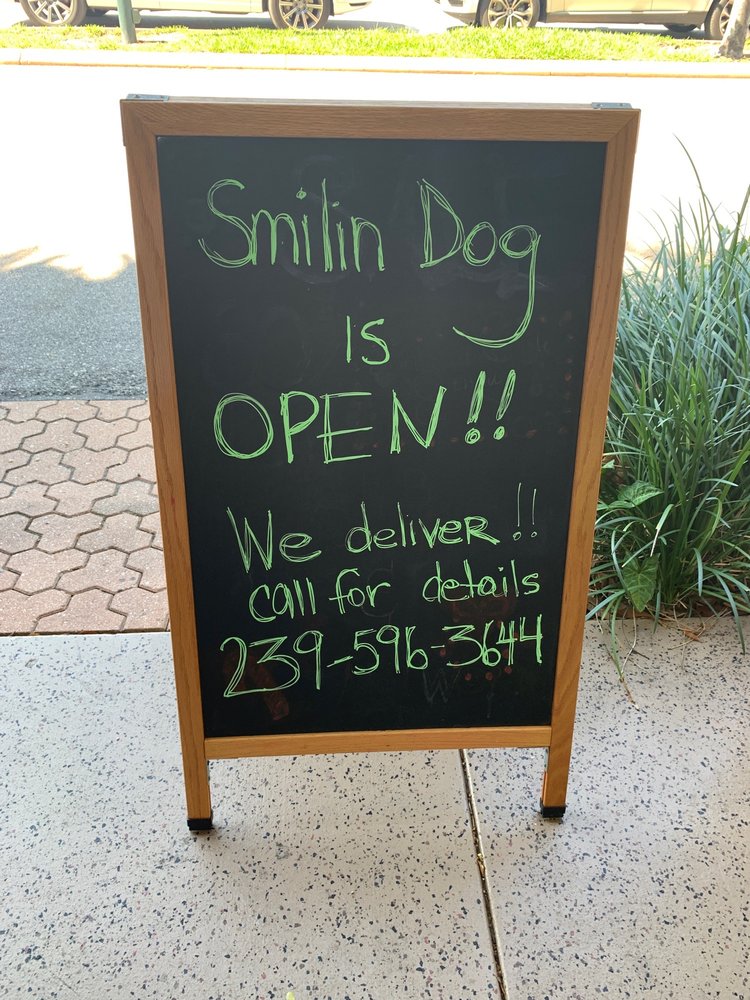 Smilin Dog
IS
OPEN!!
We deliver!!
call for details
239-596-3644